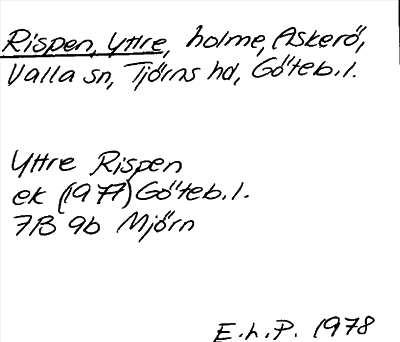 Rispen, Yttre, holme, Askerö,
Valla sn, Tjörns hd, Göteb. l.
Yttre Rispen
ek (1977) Göteb. l.
7B 9b Mjörn
E. h. P. 1978